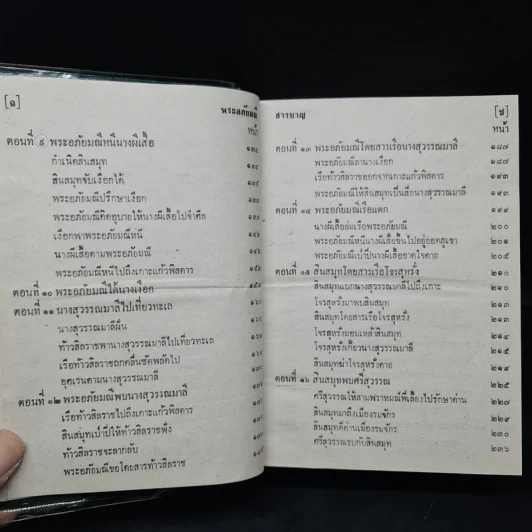 [๑]
พระอภัยมณี
หน้า
ตอนที่ ๙ พระอภัยมณีหนีนางผีเสื้อ
กำเนิดสินสมุท
สินสมุทจับเงือกได้
พระอภัยมณีปรึกษาเงือก
พระอภัยมณีคิดอุบายให้นางผีเสื้อไปจำศีล
เงือกพาพระอภัยมณีหนี
นางผีเสื้อตามพระอภัยมณี
พระอภัยมณีหนีไปถึงเกาะแก้วพิสดาร
ตอนที่ ๑๐ พระอภัยมณีได้นางเงือก
ตอนที่ ๑๑ นางสุวรรณมาลีไปเที่ยวทะเล
นางสุวรรณมาลีฝัน
ท้าวสิลราชพานางสุวรรณมาลีไปเที่ยวทะเล
เรือท้าวสิลราชถูกคลื่นซัดพลัดไป
อุศเรนตามนางสุวรรณมาลี
ตอนที่ ๑๒ พระอภัยมณีพบนางสุวรรณมาลี
เรือท้าวสิลราชไปถึงเกาะแก้วพิสดาร
สินสมุทเป่าปี่ให้ท้าวสิลราชฟัง
ท้าวสิลราชจะลากลับ
พระอภัยมณีขอโดยสารท้าวสิลราช
สารบาญ
หน้า
ตอนที่ ๑๓ พระอภัยมณีโดยสารเรือนางสุวรรณมาลี ๑๘๗
พระอภัยมณีลานางเงือก
เรือท้าวสิลราชออกจากเกาะแก้วพิสดาร
พระอภัยมณีให้สินสมุทเป็นสื่อนางสุวรรณมาลี
ตอนที่ ๑๔ พระอภัยมณีเรือแตก
นางผีเสื้อล่มเรือพระอภัยมณี ๒๐๐
พระอภัยมณีหนีนางผีเสื้อขึ้นไปอยู่ยอดภูเขา ๒๐๑
พระอภัยมณีเป่าปี่นางผีเสื้อขาดใจตาย ๒๐๕
ตอนที่ ๑๕ สินสมุทโดยสารเรือโจรสุหรั่ง ๒๑๐
สินสมุทแบกนางสุวรรณมาลีไปถึงเกาะ
โจรสุหรั่งมาพบสินสมุท
สินสมุทโดยสารเรือโจรสุหรั่ง
โจรสุหรั่งมอมเหล้าสินสมุท
โจรสุหรั่งเกี้ยวนางสุวรรณมาลี
สินสมุทฆ่าโจรสุหรั่งตาย
ตอนที่ ๑๖ สินสมุทพบศรีสุวรรณ ๒๒๕
ศรีสุวรรณให้สามพราหมณ์พี่เลี้ยงไปรักษาด่าน
สินสมุทมาถึงเมืองรมจักร ๒๒๙
สินสมุทตีด่านเมืองรมจักร ๒๓๐
ศรีสุวรรณรบกับสินสมุท ๒๓๖